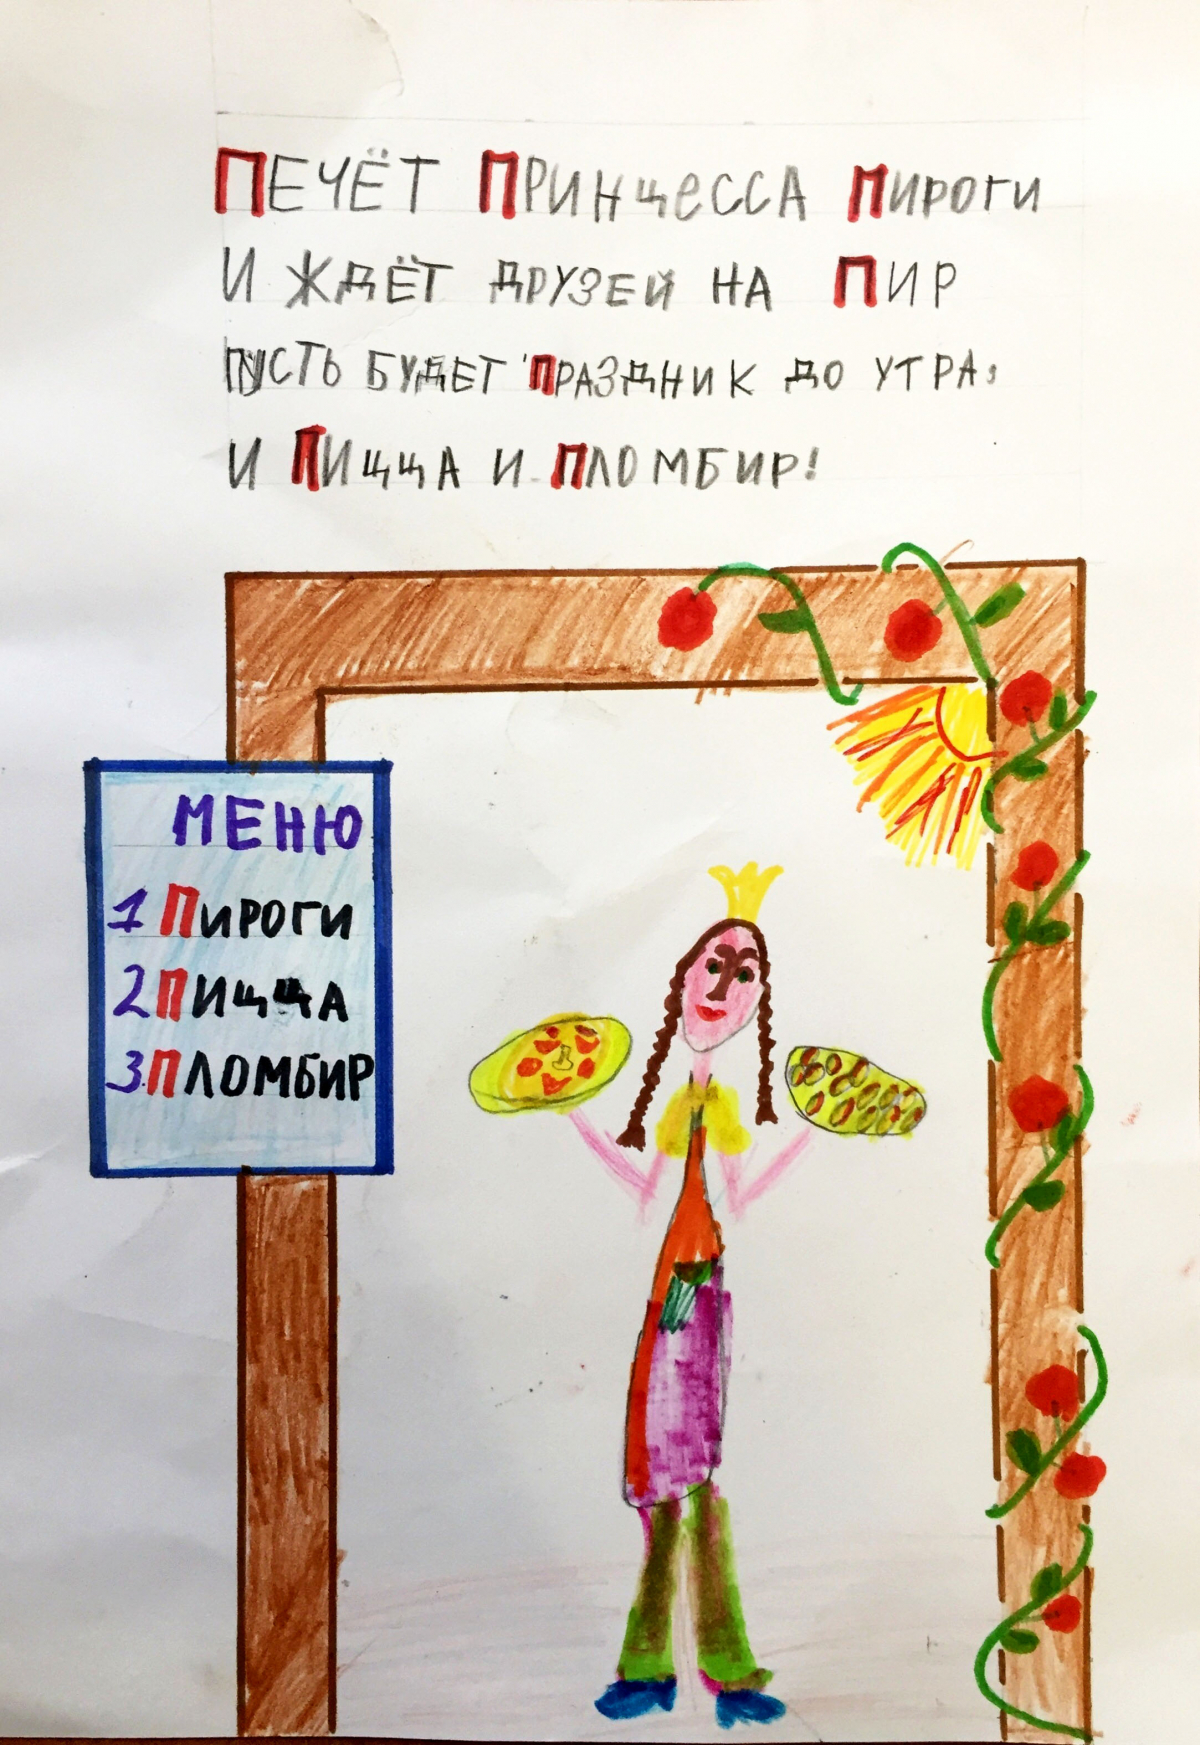 ПЕЧЁТ ПРИНЦЕССА ПИРОГИ
И ЖДЁТ ДРУЗЕЙ НА ПИР
ПУСТЬ БУДЕТ ПРАЗДНИК ДО УТРА,
И ПИЦЦА И ПЛОМБИР!
МЕНЮ
1 ПИРОГИ
2 ПИЦЦА
3.ПЛОМБИР